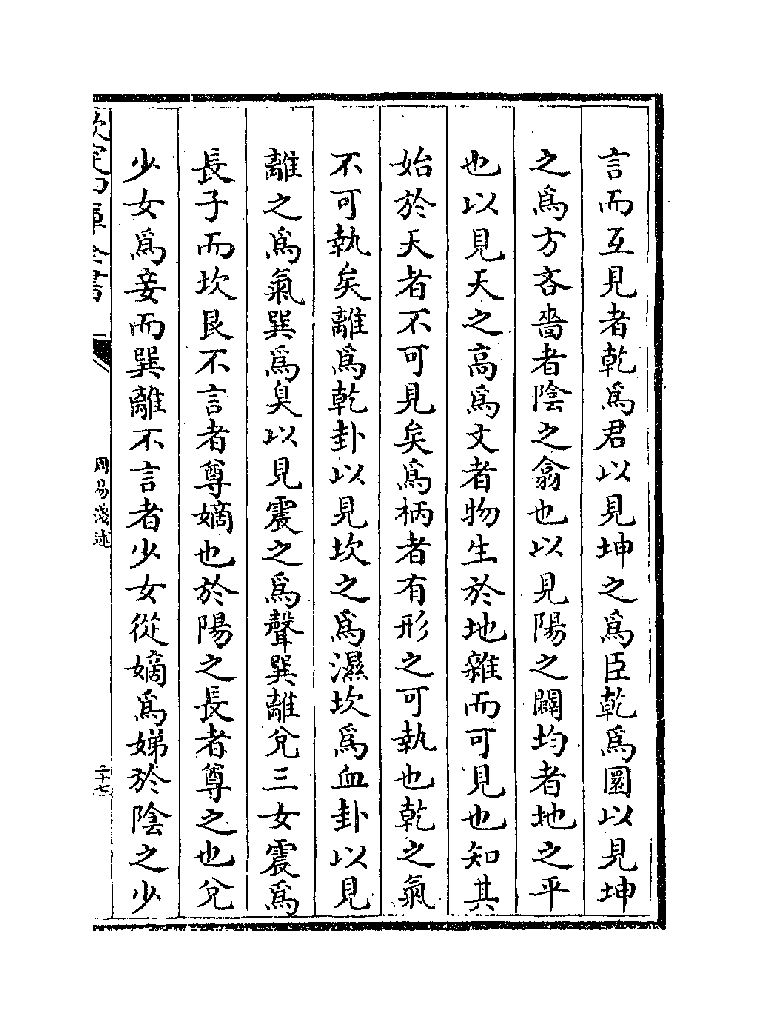 言而互見者乾爲君以見坤之爲臣乾爲圜以見坤
之爲方吝嗇者陰之翕也以見陽之闢均者地之平
也以見天之高爲文者物生於地雜而可見也知其
始於天者不可見矣爲柄者有形之可執也乾之氣
不可執矣離爲乾卦以見坎之爲濕坎爲血卦以見
離之爲氣巽爲臭以見震之爲聲巽離兊三女震爲
長子而坎艮不言者尊嫡也於陽之長者尊之也兊
少女爲妾而巽離不言者少女從嫡爲娣於陰之少
欽定四庫全書
周易淺述
二十七